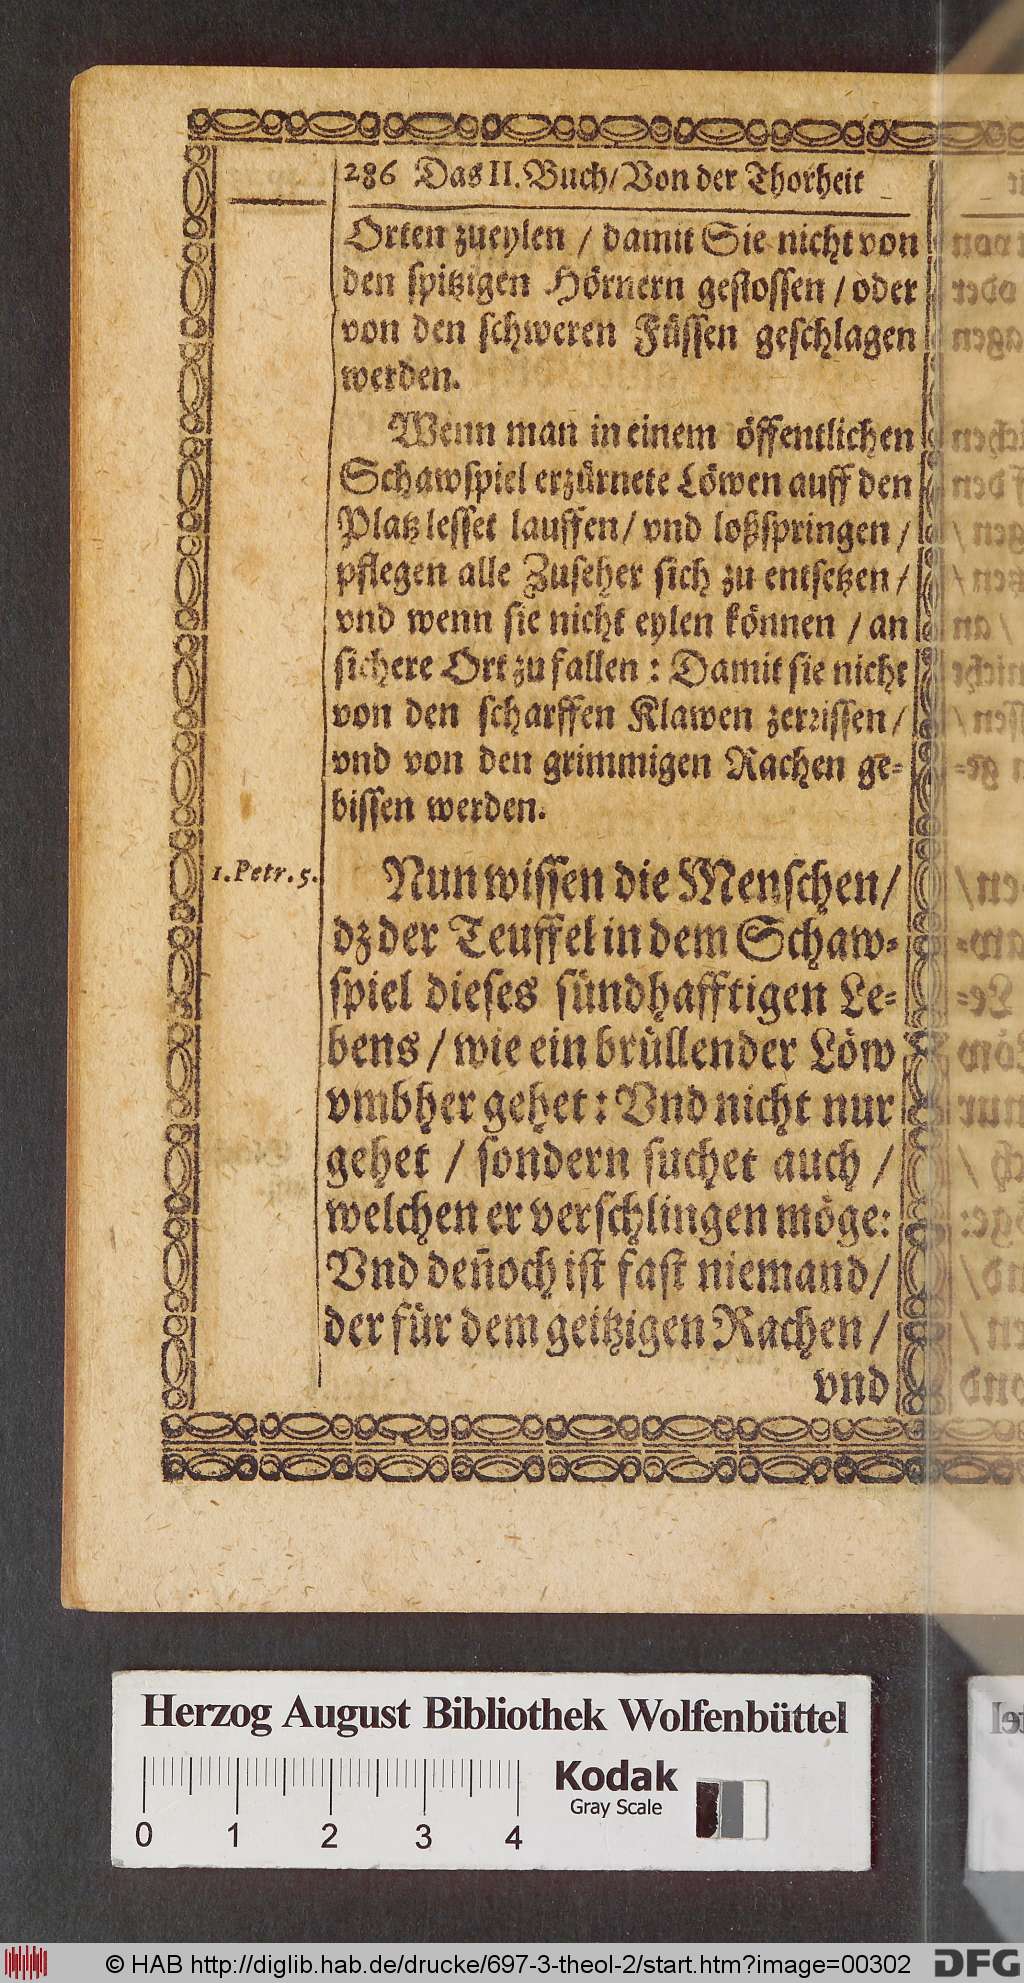 286 Das II. Buch/ Von der Thorheit
Orten zueylen / damit Sie nicht von
den spitzigen Hörnern gestossen / oder
von den schweren Füssen geschlagen
werden.
Wenn man in einem öffentlichen
Schawspiel erzürnete Löwen auff den
Platz lesset lauffen/ vnd loßspringen /
pflegen alle Zuseher sich zu entsetzen /
vnd wenn sie nicht eylen können / an
sichere Ort zu fallen : Damit sie nicht
von den scharffen Klawen zerrissen/
vnd von den grimmigen Rachen ge-
bissen werden.
1. Petr. 5.
Nun wissen die Menschen/
dz der Teuffel in dem Schaw-
spiel dieses sündhafftigen Le-
bens / wie ein brüllender Löw
vmbher gehet : Vnd nicht nur
gehet / sondern suchet auch /
welchen er verschlingen möge:
Vnd deñoch ist fast niemand/
der für dem geitzigen Rachen /
vnd
Herzog August Bibliothek Wolfenbüttel
Kodak
Gray Scale
0 1 2 3 4
© HAB http://diglib.hab.de/drucke/697-3-theol-2/start.htm?image=00302
DFG